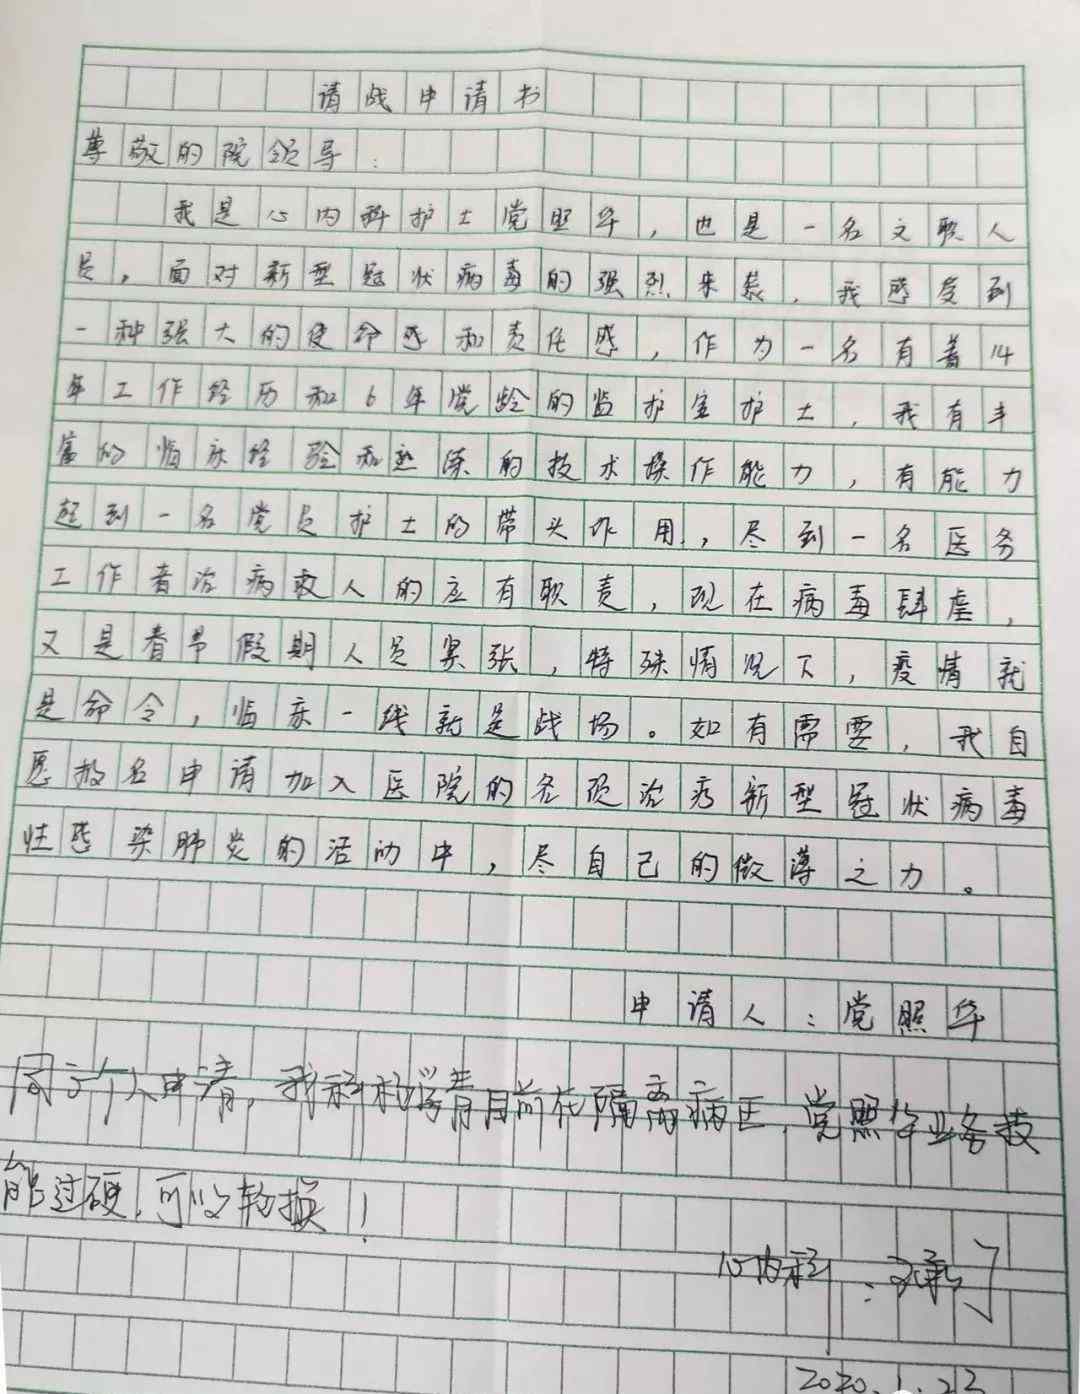 请战申请书
尊敬的院领导：
我是心内科护士党照华，也是一名文职人
员，面对新型冠状病毒的强烈来袭，我感受到
一种强大的使命感和责任感，作为一名有着14
年工作经历和6年党龄的监护室护士，我有丰
富的临床经验和熟练的技术操作能力，有能力
起到一名党员护士的带头作用，尽到一名医务
工作者治病救人的应有职责，现在病毒肆虐，
又是春节假期人员紧张，特殊情况下，疫情就
是命令，临床一线就是战场。如有需要，我自
愿报名申请加入医院的各项治疗新型冠状病毒
性感染肺炎的活动中，尽自己的微薄之力。
申请人：党照华
同意个人申请，我科目前在隔离病区，党照华业务技
能过硬，可以轮换！
心内科：
2020.1.23